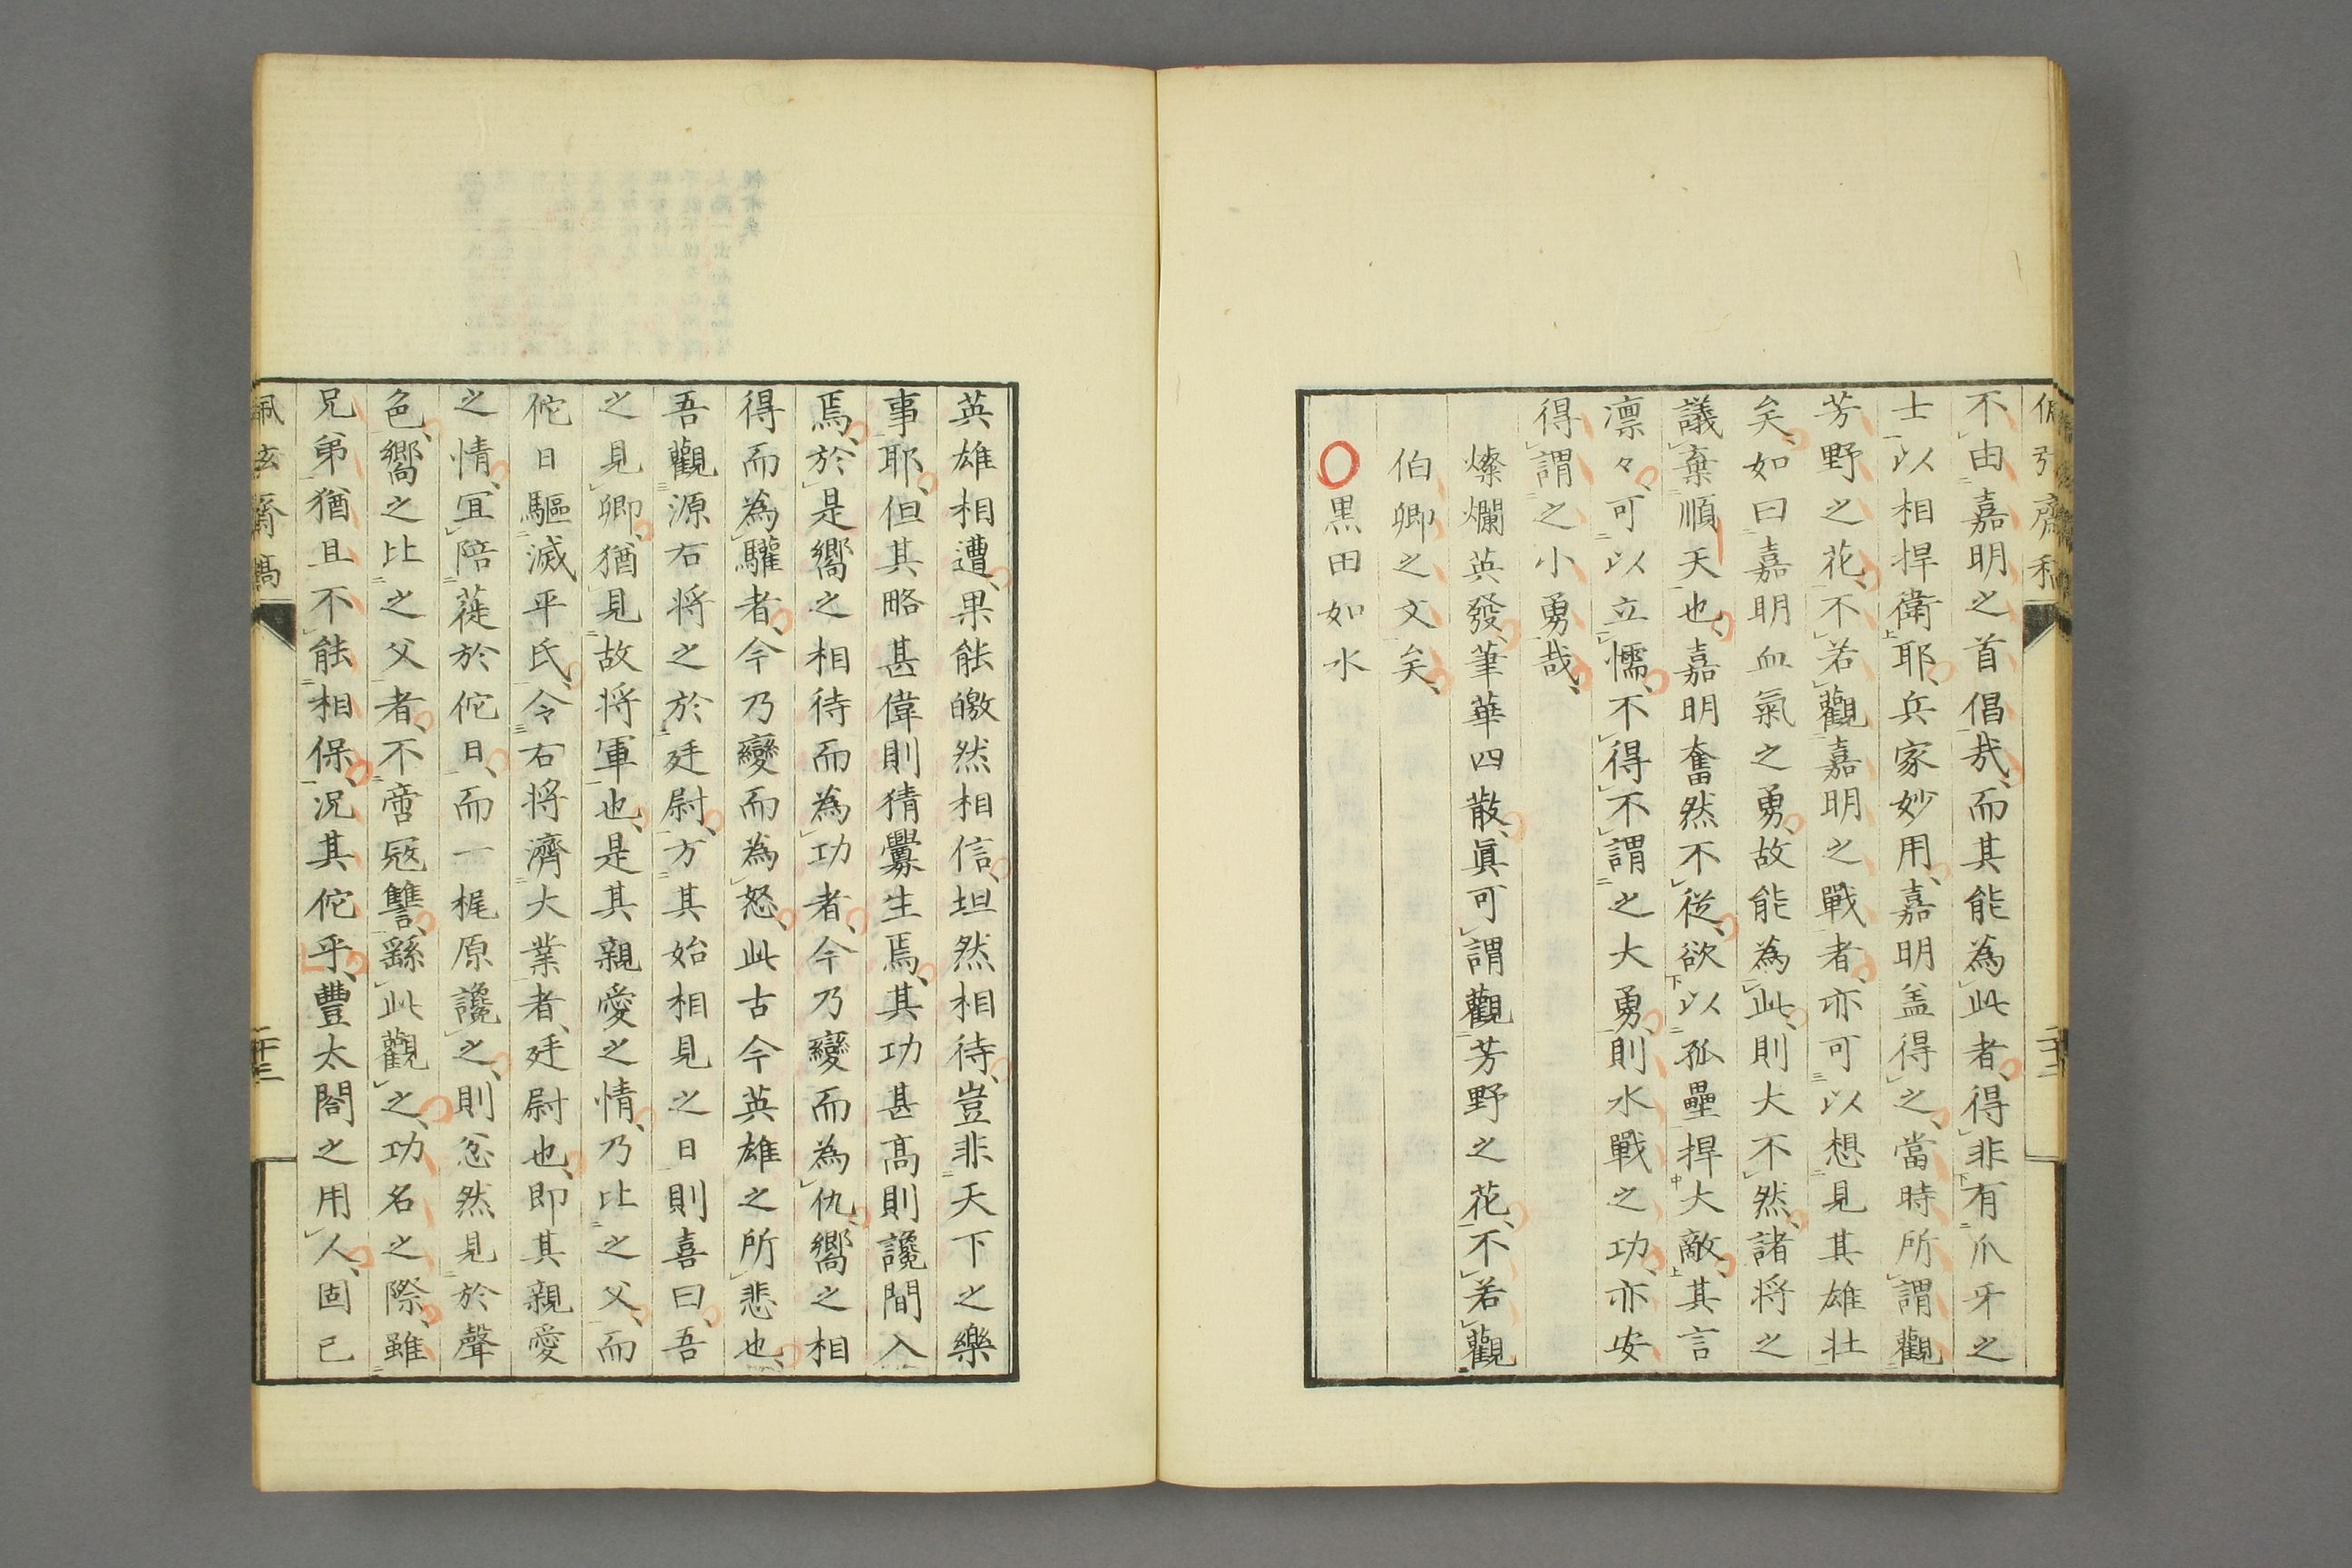 不由嘉明之首倡哉、而其能為此者、得非有爪牙之
士以相捍衛耶、兵家妙用、嘉明盖得之、當時所謂觀
芳野之花、不若觀嘉明之戰者、亦可以想見其雄壮
矣、如曰嘉明血氣之勇、故能為此、則大不然、諸将之
議棄順天也、嘉明奮然不従、欲以孤壘捍大敵、其言
凛々、可以立懦、不得不謂之大勇、則水戰之功、亦安
得謂之小勇哉、
燦爛英發、筆華四散、眞可謂觀芳野之花、不若觀
伯卿之文矣、
〇黒田如水
英雄相遭、果能皦然相信、坦然相待、豈非天下之樂
事耶、但其略甚偉則猜釁生焉、其功甚高則讒間入
焉、於是嚮之相待而為功者、今乃變而為仇、嚮之相
得而為驩者、今乃變而為怒、此古今英雄之所悲也、
吾觀源右将之於廷尉、方其始相見之日則喜曰、吾
之見卿、猶見故将軍也、是其親愛之情、乃比之父、而
佗日驅滅平氏、令右将濟大業者、廷尉也、即其親愛
之情、冝陪蓰於佗日、而一梶原讒之、則忿然見於聲
色、嚮之比之父者、不啻冦讐、繇此觀之、功名之際、雖
兄弟猶且不能相保、況其佗乎、豐太閤之用人、固已
佩玄齋稿
二十三